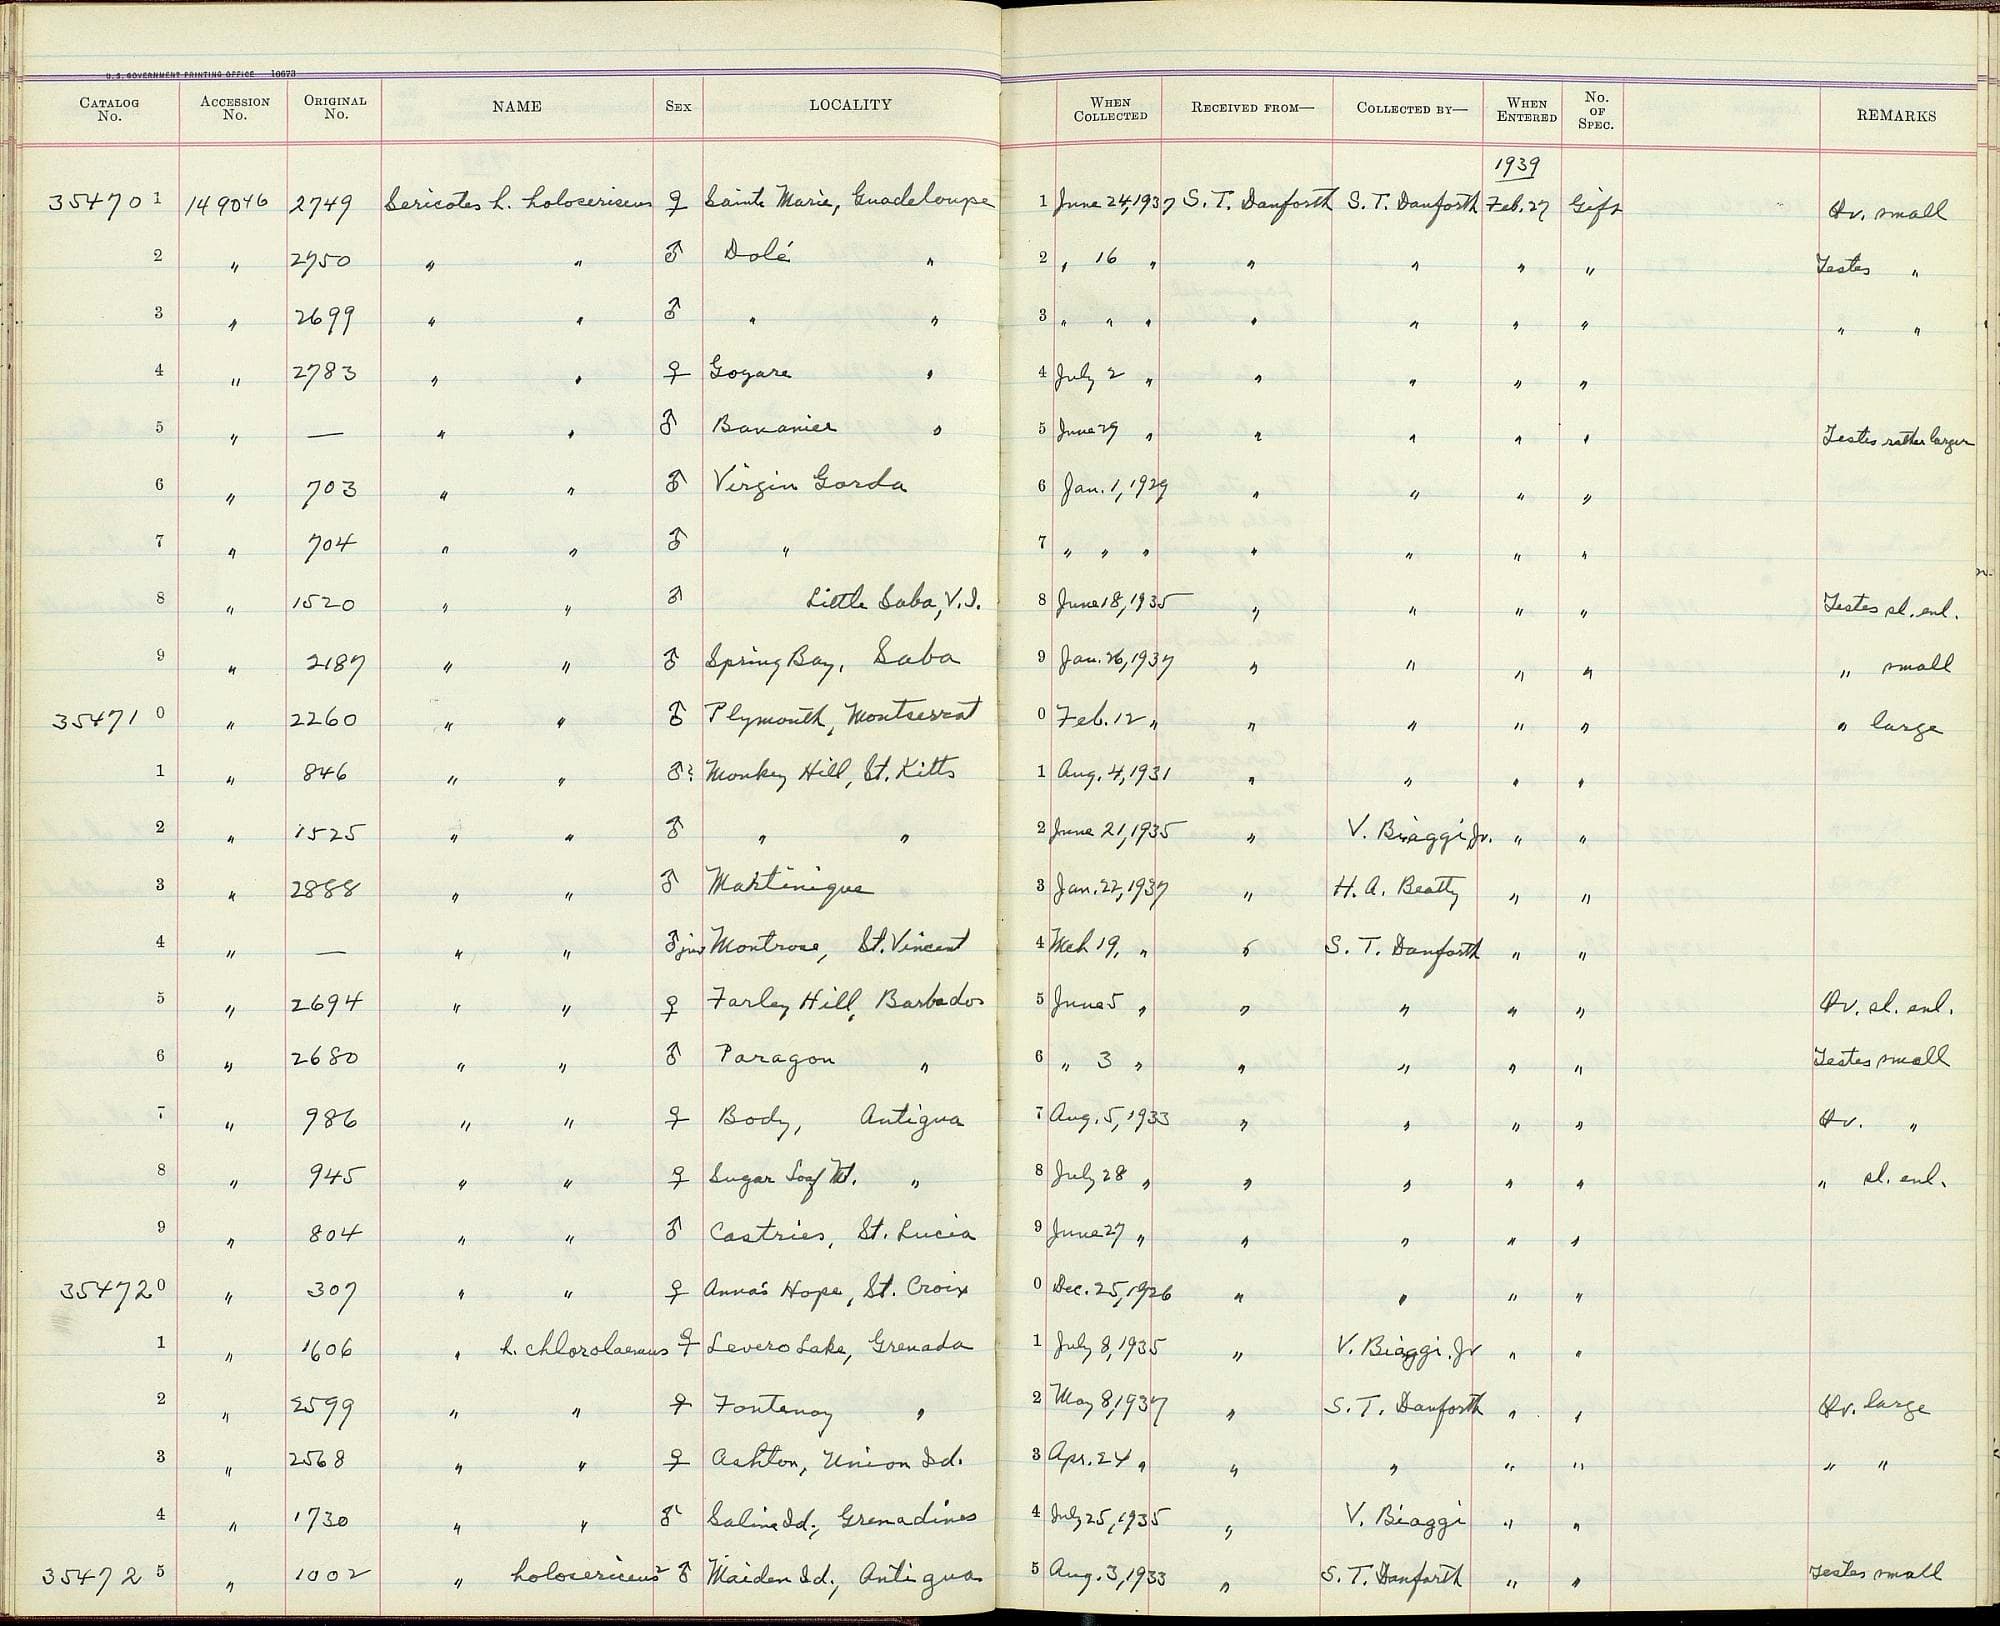 U.S. GOVERNMENT PRINTING OFFICE 10673
CATALOG No. ACCESSION No. ORIGINAL No. NAME SEX LOCALITY WHEN COLLECTED RECEIVED FROM— COLLECTED BY— WHEN ENTERED No. OF SPEC. REMARKS
1939
354701 149046 2749 Sericotes h. holosericeus ♀ Sainte Marie, Guadeloupe 1 June 24, 1937 S. T. Danforth S. T. Danforth Feb. 27 Gift Ov. small
2 " 2750 " " ♂ Dolé " 2 " 16 " " " " " Testes "
3 " 2699 " " ♂ " " 3 " " " " " " " " "
4 " 2783 " " ♀ Goyare " 4 July 2 " " " " "
5 " — " " ♂ Bananier " 5 June 29 " " " " " Testes rather larger
6 " 703 " " ♂ Virgin Gorda 6 Jan. 1, 1929 " " " "
7 " 704 " " ♂ " 7 " " " " " " "
8 " 1520 " " ♂ Little Saba, V.I. 8 June 18, 1935 " " " " Testes sl. enl.
9 " 2187 " " ♂ Spring Bay, Saba 9 Jan. 26, 1937 " " " " " small
354710 " 2260 " " ♂ Plymouth, Montserrat 0 Feb. 12 " " " " " " large
1 " 846 " " ♂? Monkey Hill, St. Kitts 1 Aug. 4, 1931 " " " "
2 " 1525 " " ♂ " " 2 June 21, 1935 " V. Biaggi Jr. " "
3 " 2888 " " ♂ Martinique 3 Jan. 22, 1937 " H. A. Beatty " "
4 " — " " ♂ juv Montrose, St. Vincent 4 Mch 19, " " S. T. Danforth " "
5 " 2694 " " ♀ Farley Hill, Barbados 5 June 5 " " " " " Ov. sl. enl.
6 " 2680 " " ♂ Paragon " 6 " 3 " " " " " Testes small
7 " 986 " " ♀ Body, Antigua 7 Aug. 5, 1933 " " " " Ov. "
8 " 945 " " ♀ Sugar Loaf Mt. " 8 July 28 " " " " " " sl. enl.
9 " 804 " " ♂ Castries, St. Lucia 9 June 27 " " " " "
354720 " 307 " " ♀ Anna's Hope, St. Croix 0 Dec. 25, 1926 " " " "
1 " 1606 " h. chlorolaemus ♀ Levero Lake, Grenada 1 July 8, 1935 " V. Biaggi. Jr " "
2 " 2599 " " ♀ Fontenoy " 2 May 8, 1937 " S. T. Danforth " " Ov. large
3 " 2568 " " ♀ Ashton, Union Id. 3 Apr. 24 " " " " " " "
4 " 1730 " " ♂ Saline Id., Grenadines 4 July 25, 1935 " V. Biaggi " "
354725 " 1002 " holosericeus ♂ Maiden Id., Antigua 5 Aug. 3, 1933 " S. T. Danforth " " Testes small